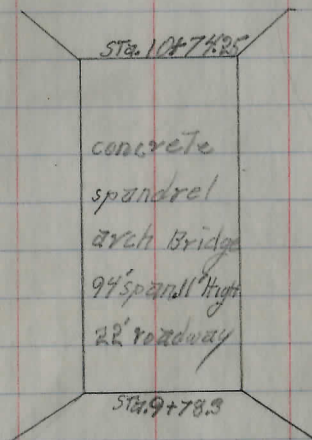 Sta. 10+74.25
concrete
spandrel
arch Bridge
94' span 11' High
22' roadway
STa. 9+78.3